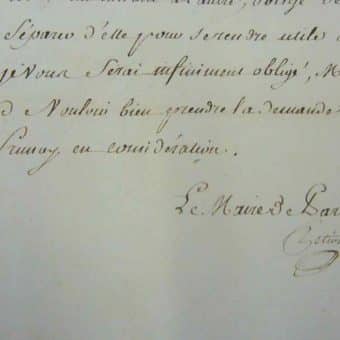 Séparer d'elle pour se rendre utile
je Vous Serai infiniment obligé, M
d Vouloir bien prendre la demande
Prunay en considération.
Le Maire de Par